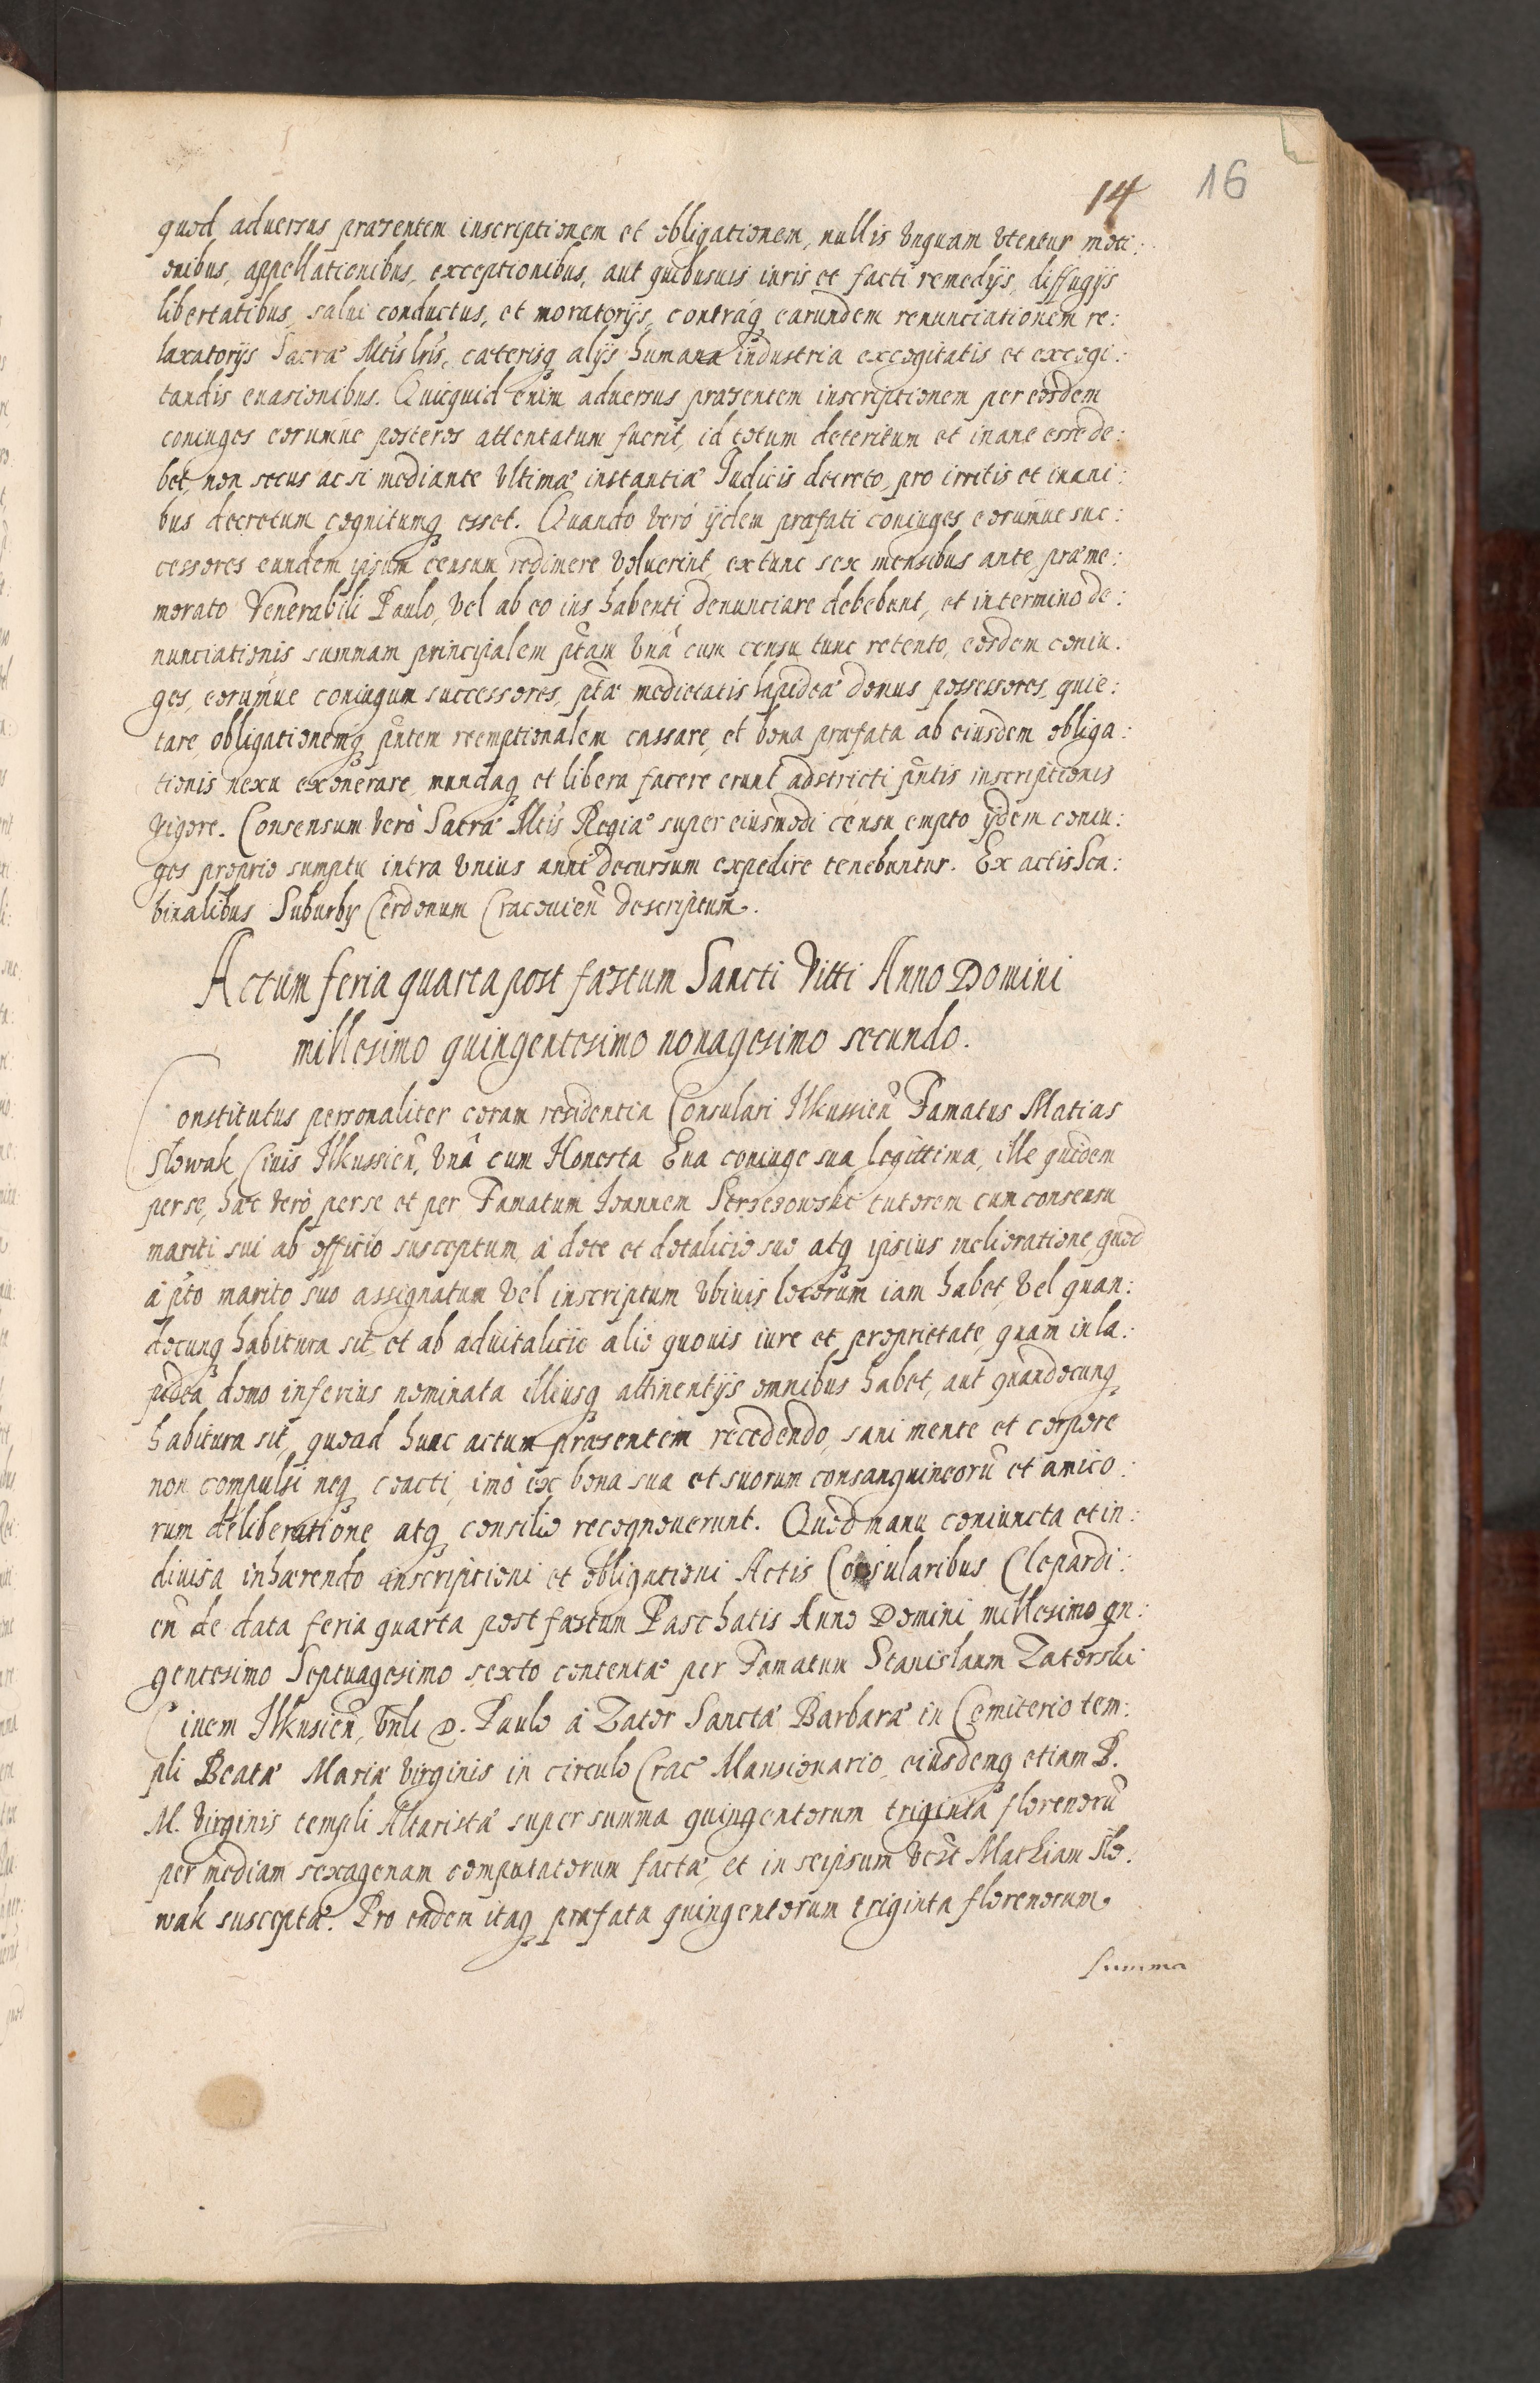 14 16
quod aduersus præsentem inscriptionem et obligationem, nullis vnquam vtentur moti:
onibus, appellationibus, exceptionibus, aut quibusuis iuris et facti remedijs, diffugijs
libertatibus, salui conductus, et moratorijs, contráq earundem renunciationem re:
laxatorijs Sacræ Mtis lris, cæterisq alijs humana industria excogitatis et excogi:
tandis euasionibus. Quicquid enim aduersus præsentem inscriptionem per eosdem
coniuges eorumue posteros attentatum fuerit, id totum deteritum et inane esse de:
bet, non secus ac si mediante vltimæ instantiæ Judicis decreto, pro irritis et inani:
bus decretum cognitumq esset. Quando verò ijdem præfati coniuges eorumue suc:
cessores eundem ipsum censum redimere voluerint, extunc sex mensibus ante præme:
morato Venerabili Paulo, vel ab eo ius habenti denunciare debebunt, et in termino de:
nunciationis summam principalem ptam vnà cum censu tunc retento, eosdem coniu:
ges, eorumue coniugum successores, ptæ medietatis lapideæ domus possessores, quie:
tare obligationemq pntem reemptionalem cassare, et bona præfata ab eiusdem obliga:
tionis nexu exonerare, mundaq et libera facere erunt adstricti pntis inscriptionis
vigore. Consensum verò Sacræ Mtis Regiæ super eiusmodi censu empto ijdem coniu:
ges proprio sumptu intra vnius anni decursum expedire tenebuntur. Ex actis Sca:
binalibus Suburby Cerdonum Cracouien descriptum.
Actum feria quarta post fæstum Sancti Vitti Anno Domini
millesimo quingentesimo nonagesimo secundo.
Constitutus personaliter coram residentia Consulari Ilkussien Famatus Matias
Slowak Ciuis Ilkussien, vnâ cum Honesta Eua coniuge sua legittima, ille quidem
per se, hæc verò per se et per Famatum Ioannem Strzezowski tutorem cum consensu
mariti sui ab officio susceptum, à dote et dotalicio suo atq ipsius melioratione, quod
à pto marito suo assignatum vel inscriptum vbiuis locorum iam habet, vel quan:
docunq habitura sit, et ab aduitalicio alio quouis iure et proprietate, quam in la:
pidea domo inferius nominata illiusq attinentijs omnibus habet, aut quandocunq
habitura sit, quoad hunc actum præsentem recedendo, sani mente et corpore
non compulsi neq coacti, imò ex bona sua et suorum consanguineorū et amico:
rum deliberatione atq consilio recognouerunt. Quod manu coniuncta et in:
diuisa inhærendo inscriptioni et obligationi Actis Consularibus Clepardi:
en de data feria quarta post fæstum Paschatis Anno Domini millesimo qn:
gentesimo Septuagesimo sexto contentæ per Famatum Stanislaum Zatorski
Ciuem Ilkusien, vnli D. Paulo à Zator Sanctæ Barbaræ in Cemiterio tem:
pli Beatæ Mariæ Virginis in circulo Crac Mansionario, eiusdemq etiam B.
M. Virginis templi Altaristæ super summa quingentorum triginta florenorū
per mediam sexagenam computatorum factæ, et in seipsum vest Mathiam Slo:
wak susceptæ. Pro eadem itaq præfata quingentorum triginta florenorum
Summa